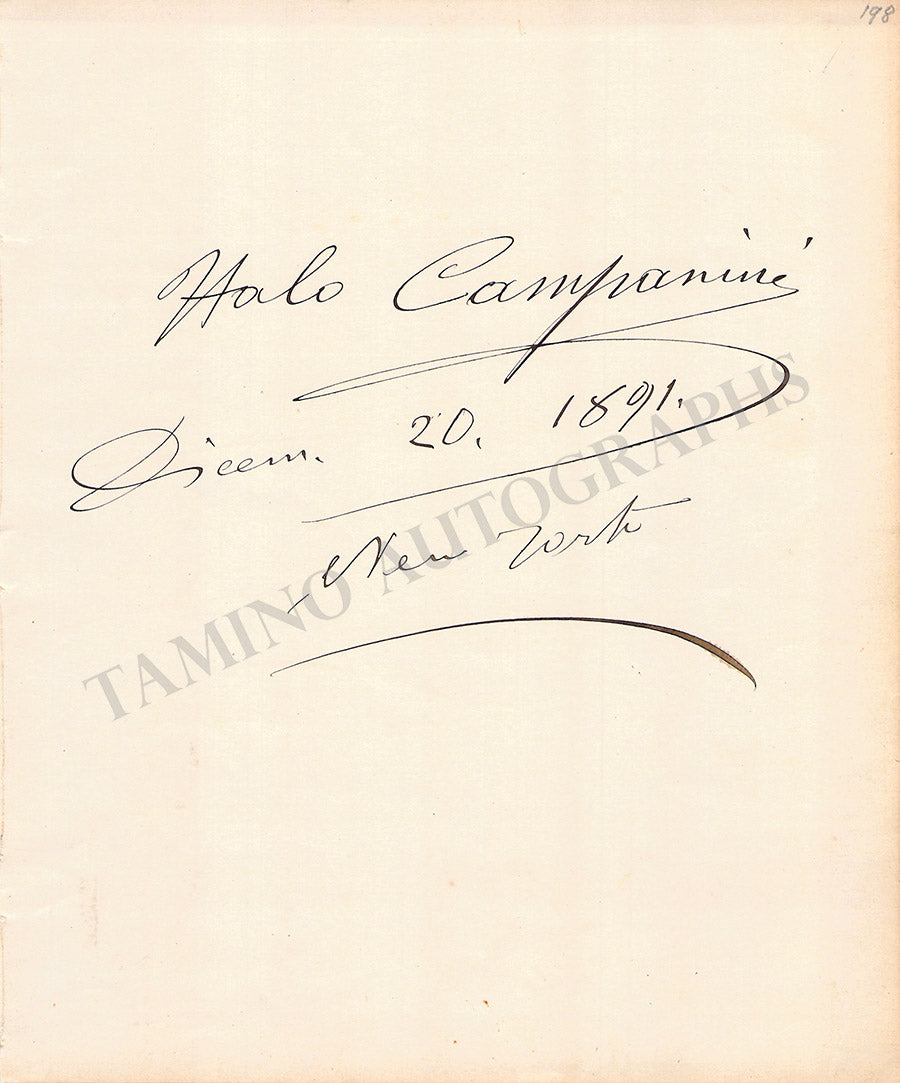 198
Italo Campanini
Dicem. 20. 1891.
New York
TAMINO AUTOGRAPHS